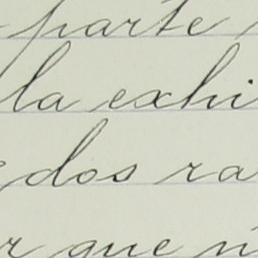 parte
la exhi
dos ra
r que n